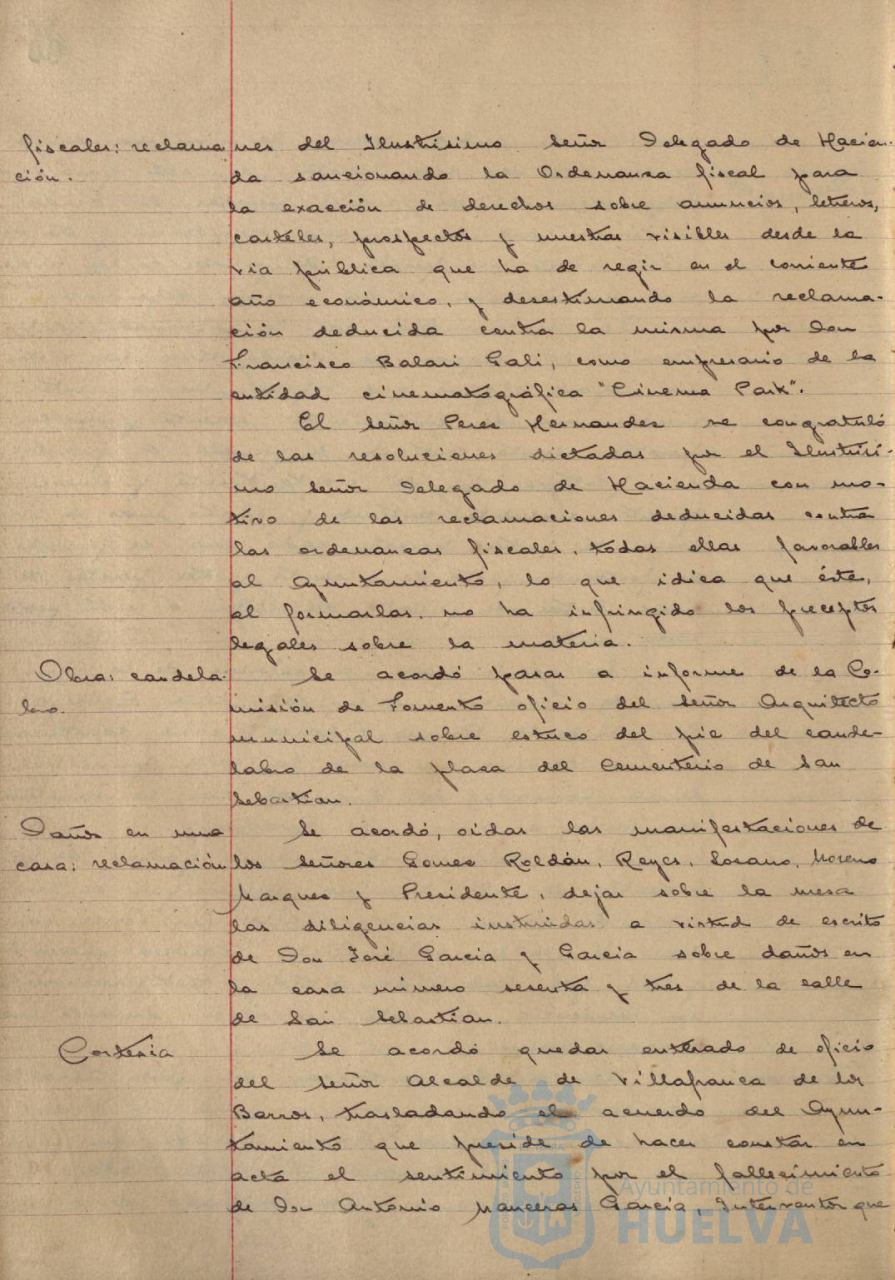 fiscales: reclama
ción.
nes del Ilustrísimo Señor Delegado de Hacien-
da sancionando la Ordenanza fiscal para
la exacción de derechos sobre anuncios, letreros,
carteles, prospectos y muestras visibles desde la
vía pública que ha de regir en el corriente
año económico, y desestimando la reclama-
ción deducida contra la misma por Don
Francisco Balari Galí, como empresario de la
entidad cinematográfica "Cinema Park".
El Señor Perez Hernandez se congratuló
de las resoluciones dictadas por el Ilustrísi-
mo Señor Delegado de Hacienda con mo-
tivo de las reclamaciones deducidas contra
las ordenanzas fiscales, todas ellas favorables
al Ayuntamiento, lo que idica que éste,
al formarlas, no ha infringido los preceptos
legales sobre la materia.
Obra: candela-
bro.
Se acordó pasar a informe de la Co-
misión de Fomento oficio del Señor Arquitecto
municipal sobre estuco del pie del cande-
labro de la plaza del Cementerio de San
Sebastian.
Daños en una
casa: reclamación
Se acordó, oidas las manifestaciones de
los Señores Gomez Roldán, Reyes, Lozano, Moreno
Marquez y Presidente, dejar sobre la mesa
las diligencias instruidas a virtud de escrito
de Don José Garcia y Garcia sobre daños en
la casa número sesenta y tres de la calle
de San Sebastian.
Cortesia
Se acordó quedar enterado de oficio
del Señor Alcalde de Villafranca de los
Barros, trasladando el acuerdo del Ayun-
tamiento que preside de hacer constar en
acta el sentimiento por el fallecimiento
de Don Antonio Manceras Garcia, Interventor que
Ayuntamiento de
HUELVA